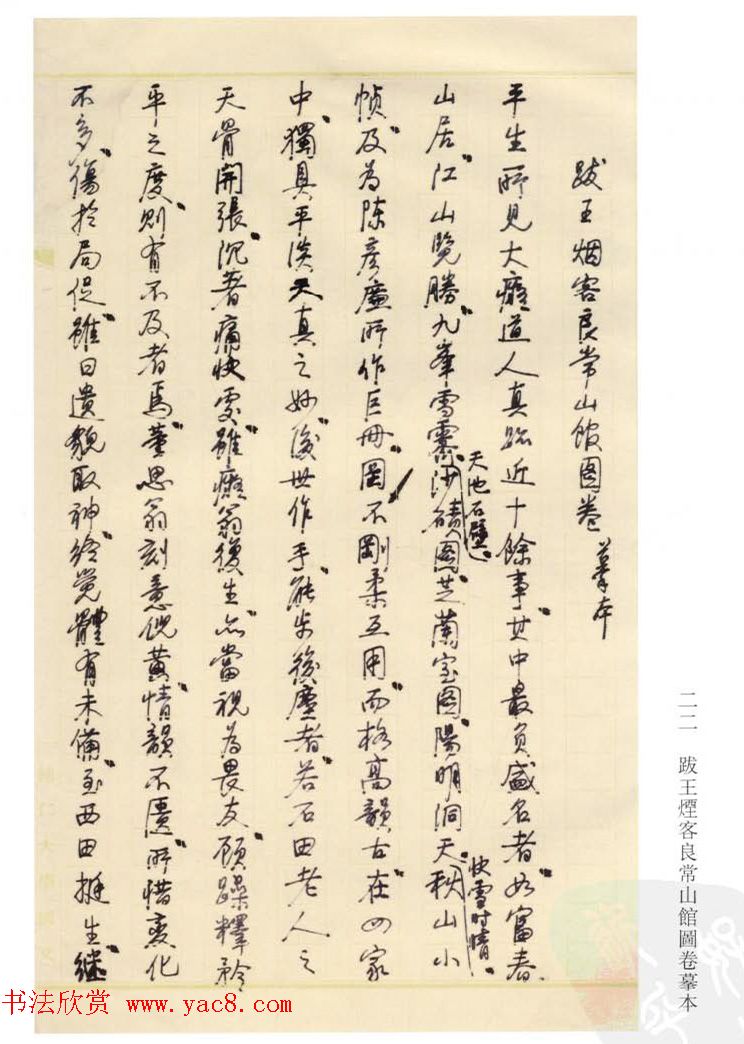 跋王烟客良常山館图卷 摹本
平生所見大癡道人真跡近十餘事其中最負盛名者如富春
山居江山覽勝九峯雪霽天池石壁沙磧图芝蘭室图陽明洞天快雪时晴秋山小
幀及为陈彦廉所作巨冊罔不剛柔互用而格高韻古在四家
中獨具平淡天真之妙後世作手能步後塵者若石田老人之
天骨開張沉著痛快处雖癡翁復生亦當視为畏友顾躁釋矜
平之度则有不及者焉董思翁刻意倪黄情韻不匮所惜变化
不多傷於局促雖曰遺貌取神终觉體有未備至西田挺生继
二二 跋王煙客良常山館圖卷摹本
书法欣赏 www.yac8.com